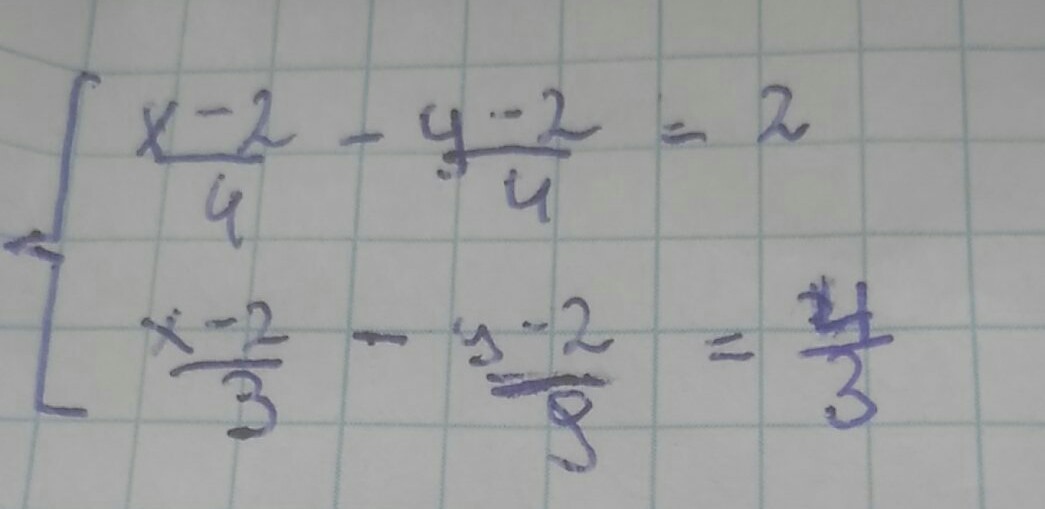 x-2/4 - y-2/4 = 2
x-2/3 - y-2/9 = 4/3